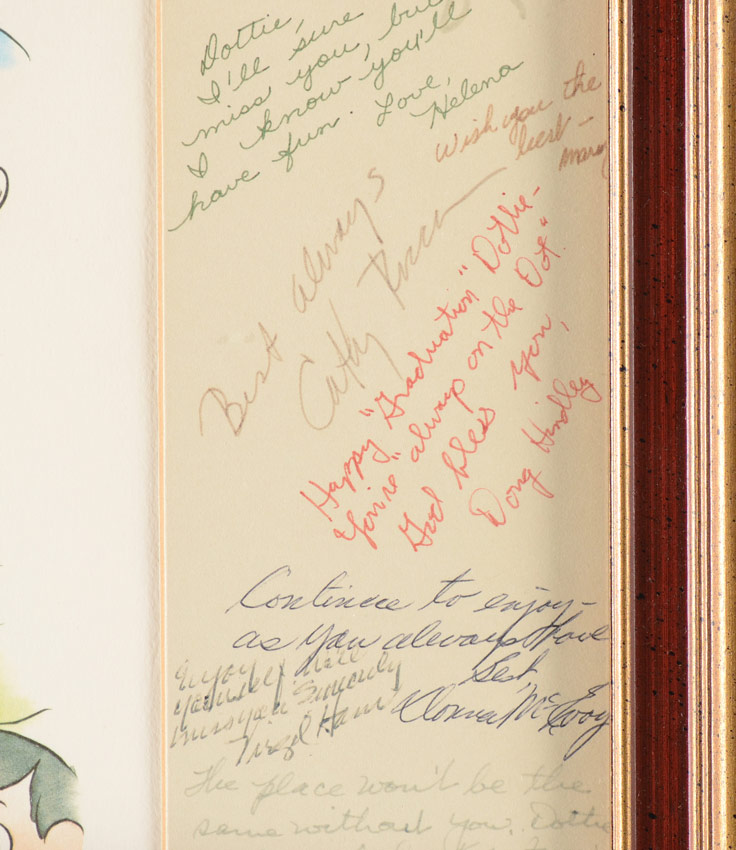 Dottie,
I'll sure
miss you, but
I know you'll
have fun. Love,
Helena
Wish you the
best —
Mary
Best always
Cathy
Happy "Graduation" Dottie-
You're "always on the Dot"
God bless you,
Doug Hindley
Continue to enjoy-
as you always have
Best,
Donna McEvoy
Enjoy
yourself will
miss you Sincerely
Virgil
The place won't be the
same without you, Dottie